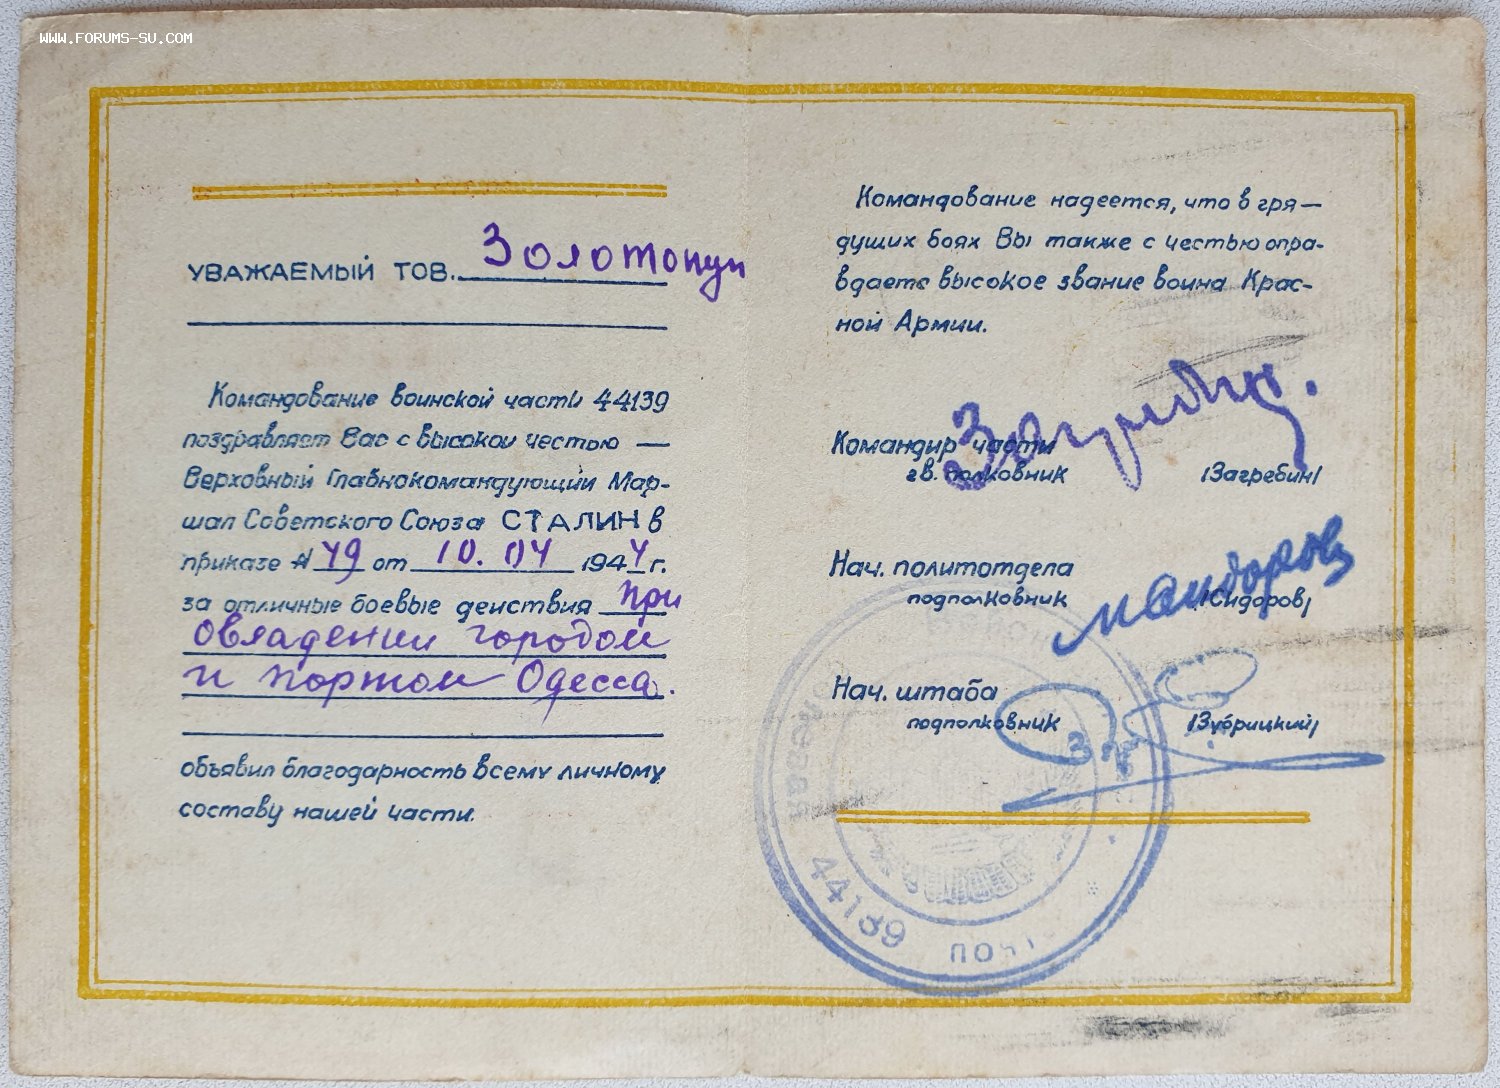 WWW.FORUMS-SU.COM
УВАЖАЕМЫЙ ТОВ. Золотопуп
Командование воинской части 44139
поздравляет Вас с высокой честью —
Верховный Главнокомандующий Мар-
шал Советского Союза СТАЛИН в
приказе № 49 от 10.04 1944 г.
за отличные боевые действия при
овладении городом
и портом Одесса.
объявил благодарность всему личному
составу нашей части.
Командование надеется, что в гря—
дущих боях Вы также с честью опра-
вдаете высокое звание воина Крас-
ной Армии.
Командир части
гв. полковник /Загребин/
Нач. политотдела
подполковник /Сидоров/
Нач. штаба
подполковник /Зубрицкий/
полевая 44139 почт